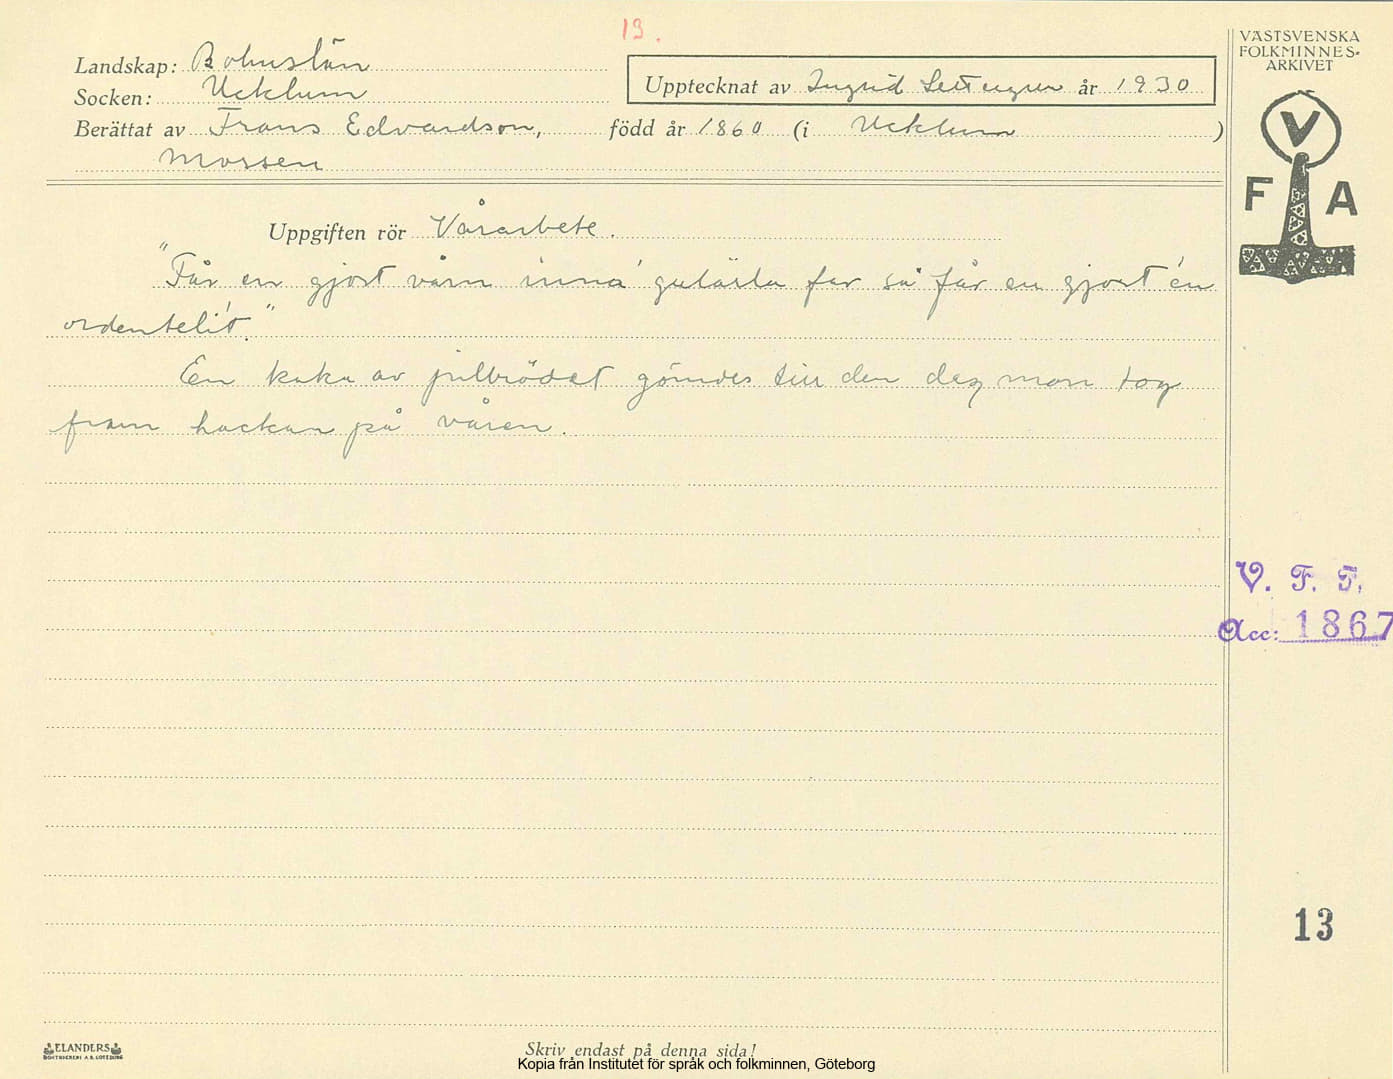 13.
VÄSTSVENSKA
FOLKMINNES-
ARKIVET
Landskap: Bohuslän
Socken: Ucklum
Upptecknat av Ingrid år 1930
Berättat av Frans Edvardson, född år 1860 (i Ucklum)
Mossen
V
F A
Uppgiften rör Vårarbete.
"Får en gjort vårn inna gulärla far så får en gjort 'en
ordentelit."
En kaka av julbrödet gömdes till den dag man tog
fram hackan på våren.
V. F. F.
Acc: 1867
13
ELANDERS
BOKTRYCKERI A.B. GÖTEBORG
Skriv endast på denna sida!
Kopia från Institutet för språk och folkminnen, Göteborg